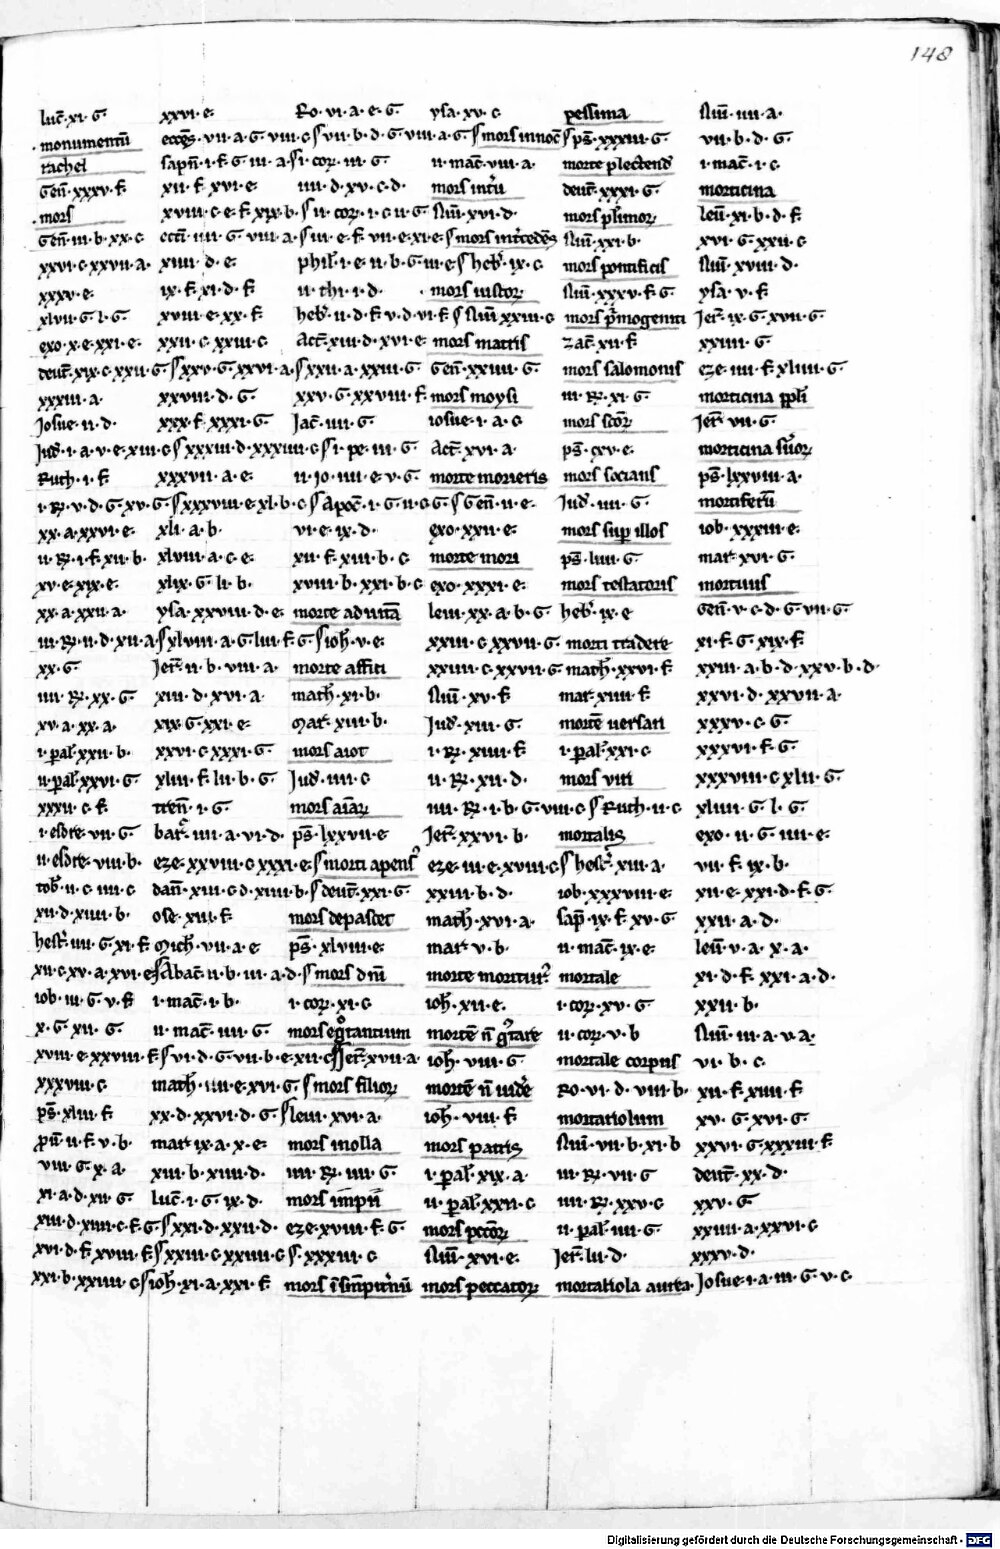 148
luc̄·xi·G
·monumentū
rachel
Gen̄·xxxv·f
·mors
Gen̄·iii·b·xx·c
xxvi·c·xxvii·a·
xxxv·e·
xlvii·G·l·G·
exo·x·e·xxi·e·
deut̄·xix·c·xxii·G·
xxxiii·a·
Josue·ii·d·
Jud̄·i·a·v·e·xiii·c
Ruth·i·f
i·R·v·d·G·xv·G·
xx·a·xxvi·e·
ii·R·i·f·xii·b·
xv·e·xix·e·
xx·a·xxii·a·
iii·R·ii·d·xii·a
xx·G·
iiii·R·xx·G·
xv·a·xx·a·
i·pal̄·xxii·b·
ii·pal̄·xxvi·G
xxxii·c·f
i·esdre·vii·G·
ii·esdre·viii·b·
tob̄·ii·c·iiii·c
xii·d·xiiii·b·
hest̄·iiii·G·xi·f
xii·c·xv·a·xvi·e
iob·iii·G·v·f
x·G·xii·G
xviii·e·xxviii·f
xxxviii·c
ps̄·xlii·f
ꝓū·ii·f·v·b·
viii·G·x·a·
xi·a·d·xii·G·
xiii·d·xiiii·c·f·G
xvi·d·f·xviii·f
xxi·b·xxiiii·c
xxvi·e·
eccs̄·vii·a·G·viii·c
sapn̄·i·f·G·iii·a·
xii·f·xvi·e·
xviii·c·e·f·xix·b·
ecti·iiii·G·viii·a·
xiiii·d·e·
ix·f·xi·d·f
xviii·e·xx·f
xxii·c·xxiii·c
xxv·G·xxvi·a·
xxviii·d·G·
xxx·f·xxxi·G·
xxxiii·d·xxxiiii·c
xxxvii·a·e·
xxxviii·e·xl·b·c
xli·a·b·
xlviii·a·c·e·
xlix·G·li·b·
ysa·xxviii·d·e·
xlviii·a·G·liii·f·G
Jer̄·ii·b·viii·a·
xiii·d·xvi·a
xix·G·xxi·e·
xxvi·c·xxxi·G·
xliii·f·lii·b·G·
tren̄·i·G·
bar̄·iiii·a·vi·d·
eze·xxviii·c·xxxi·e·
dan̄·xiii·c·d·xiiii·b·
ose·xiii·f
Mich̄·vii·a·e
Abac̄·ii·b·iii·a·d·
i·mac̄·i·b·
ii·mac̄·iiii·G·
vi·d·G·vii·b·e·xii·c
math̄·iiii·e·xvi·G·
xx·d·xxvi·d·G·
mar·ix·a·x·e·
xiii·b·xiiii·d·
luc̄·i·G·ix·d·
xxi·d·xxii·d·
xxiii·c·xxiiii·c
ioh̄·xi·a·xxi·f·
Ro·vi·a·e·G·
vii·b·d·G·viii·a·G·
i·cor̄·iii·G·
iiii·d·xv·c·d·
ii·cor̄·i·c·ii·G·
iii·e·f·vii·e·xi·e·
phil̄·i·e·ii·b·G·iii·e
ii·thi·i·d·
heb̄·ii·d·f·v·d·vi·f
Act̄·xiii·d·xvi·e·
xxii·a·xxiii·G·
xxv·G·xxviii·f·
Jac̄·iiii·G·
i·pe·iii·G·
ii·io·iiii·e·v·G·
Apoc̄·i·G·ii·c·G·
vi·e·ix·d·
xii·f·xiii·b·c
xviii·b·xxi·b·c
morte ad unā
ioh̄·v·e·
morte affici
math̄·xi·b·
Mar̄·xiii·b·
mors aiot
Jud̄·iiii·c
mors aiar̄
ps̄·lxxvii·e·
morti apens̄
deut̄·xxi·G·
mors depascet
ps̄·xlviii·e·
mors dn̄i
i·cor̄·xi·c
mors egrotantium
Jer̄·xvii·a·
mors filior̄
leui·xvi·a·
mors molla
iiii·R·iiii·G·
mors impii
eze·xviii·f·G
xxxiii·c
mors ī sempit̄nū
ysa·xv·c
mors innoc̄
ii·mac̄·viii·a·
mors int̄u
Nūi·xvi·d·
mors int̄cedēs
heb̄·ix·c·
·mors iustor̄
Nūi·xxiii·c
mors matris
Gen̄·xxiiii·G·
mors moysi
iosue·i·a·c
Act̄·xvi·a·
morte morieris
Gen̄·ii·e·
exo·xxii·e·
morte mori
exo·xxxi·e·
leui·xx·a·b·G·
xxiii·c·xxvii·G·
xxiiii·c·xxvii·G·
Nūi·xv·f·
Jud̄·xiii·G·
i·R·xiiii·f
ii·R·xii·d·
iiii·R·i·b·G·viii·c
Jer̄·xxvi·b·
eze·iii·e·xviii·c
xxiii·b·d·
math̄·xvi·a·
mar·v·b·
morte moritur̄
ioh̄·xii·e·
mortē n̄ gustare
ioh·viii·G·
mortē n̄ uidē
ioh̄·viii·f·
mors patris
i·pal̄·xix·a·
ii·pal̄·xxii·c
mors pctōr̄
Nūi·xvi·e·
mors peccator̄
pessima
ps̄·xxxiii·G·
morte plectend̄
deut̄·xxxi·G·
mors plimor̄
Nūi·xxi·b·
mors pontificis
Nūi·xxxv·f·G·
mors p̄mogeniti
zac̄·xii·f
mors salomonis
iii·R·xi·G·
mors scōr̄
ps̄·cxv·e·
mors socians
Jud̄·iiii·G·
mors sup illos
ps̄·liiii·G·
mors testatoris
heb̄·ix·e
morti tradere
math̄·xxvi·f
mar·xiiii·f·
mortē uersari
i·pal̄·xxi·c
mors viri
Ruth·ii·c
mortalis
hest̄·xiii·a·
iob·xxxviii·e·
sap̄·ix·f·xv·G·
ii·mac̄·ix·e·
mortale
i·cor̄·xv·G·
ii·cor̄·v·b
mortale corpus
Ro·vi·d·viii·b·
mortariolum
Nūi·vii·b·xi·b
iii·R·vii·G
iiii·R·xxv·c
ii·pal̄·iiii·G·
Jer̄·lii·d·
mortariola aurea·
Nūi·iiii·a·
vii·b·d·G·
i·mac̄·i·c
morticina
leū·xi·b·d·f·
xvi·G·xxii·c
Nūi·xviii·d·
ysa·v·f
Jer̄·ix·G·xvii·G·
xxiiii·G·
eze·iiii·f·xliiii·G·
morticina ppl̄i
Jer̄·vii·G·
morticina suor̄
ps̄·lxxviii·a·
mortiferū
iob·xxxiii·e·
mar·xvi·G·
mortuus
Gen̄·v·c·d·G·vii·G·
xi·f·G·xix·f·
xxiii·a·b·d·xxv·b·d·
xxvi·d·xxvii·a·
xxxv·c·G·
xxxvi·f·G·
xxxviii·c·xlii·G·
xliiii·G·l·G·
exo·ii·G·iiii·e·
vii·f·ix·b·
xii·e·xxi·d·f·G·
xxii·a·d·
leū·v·a·x·a·
xi·d·f·xxi·a·d·
xxii·b·
Nūi·iii·a·v·a·
vi·b·c·
xii·f·xiiii·f
xv·G·xvi·G·
xxvi·G·xxxiii·f·
deut̄·xx·d·
xxv·G
xxiiii·a·xxvi·c
xxxv·d·
Josue·i·a·iii·G·v·c·
Digitalisierung gefördert durch die Deutsche Forschungsgemeinschaft · DFG